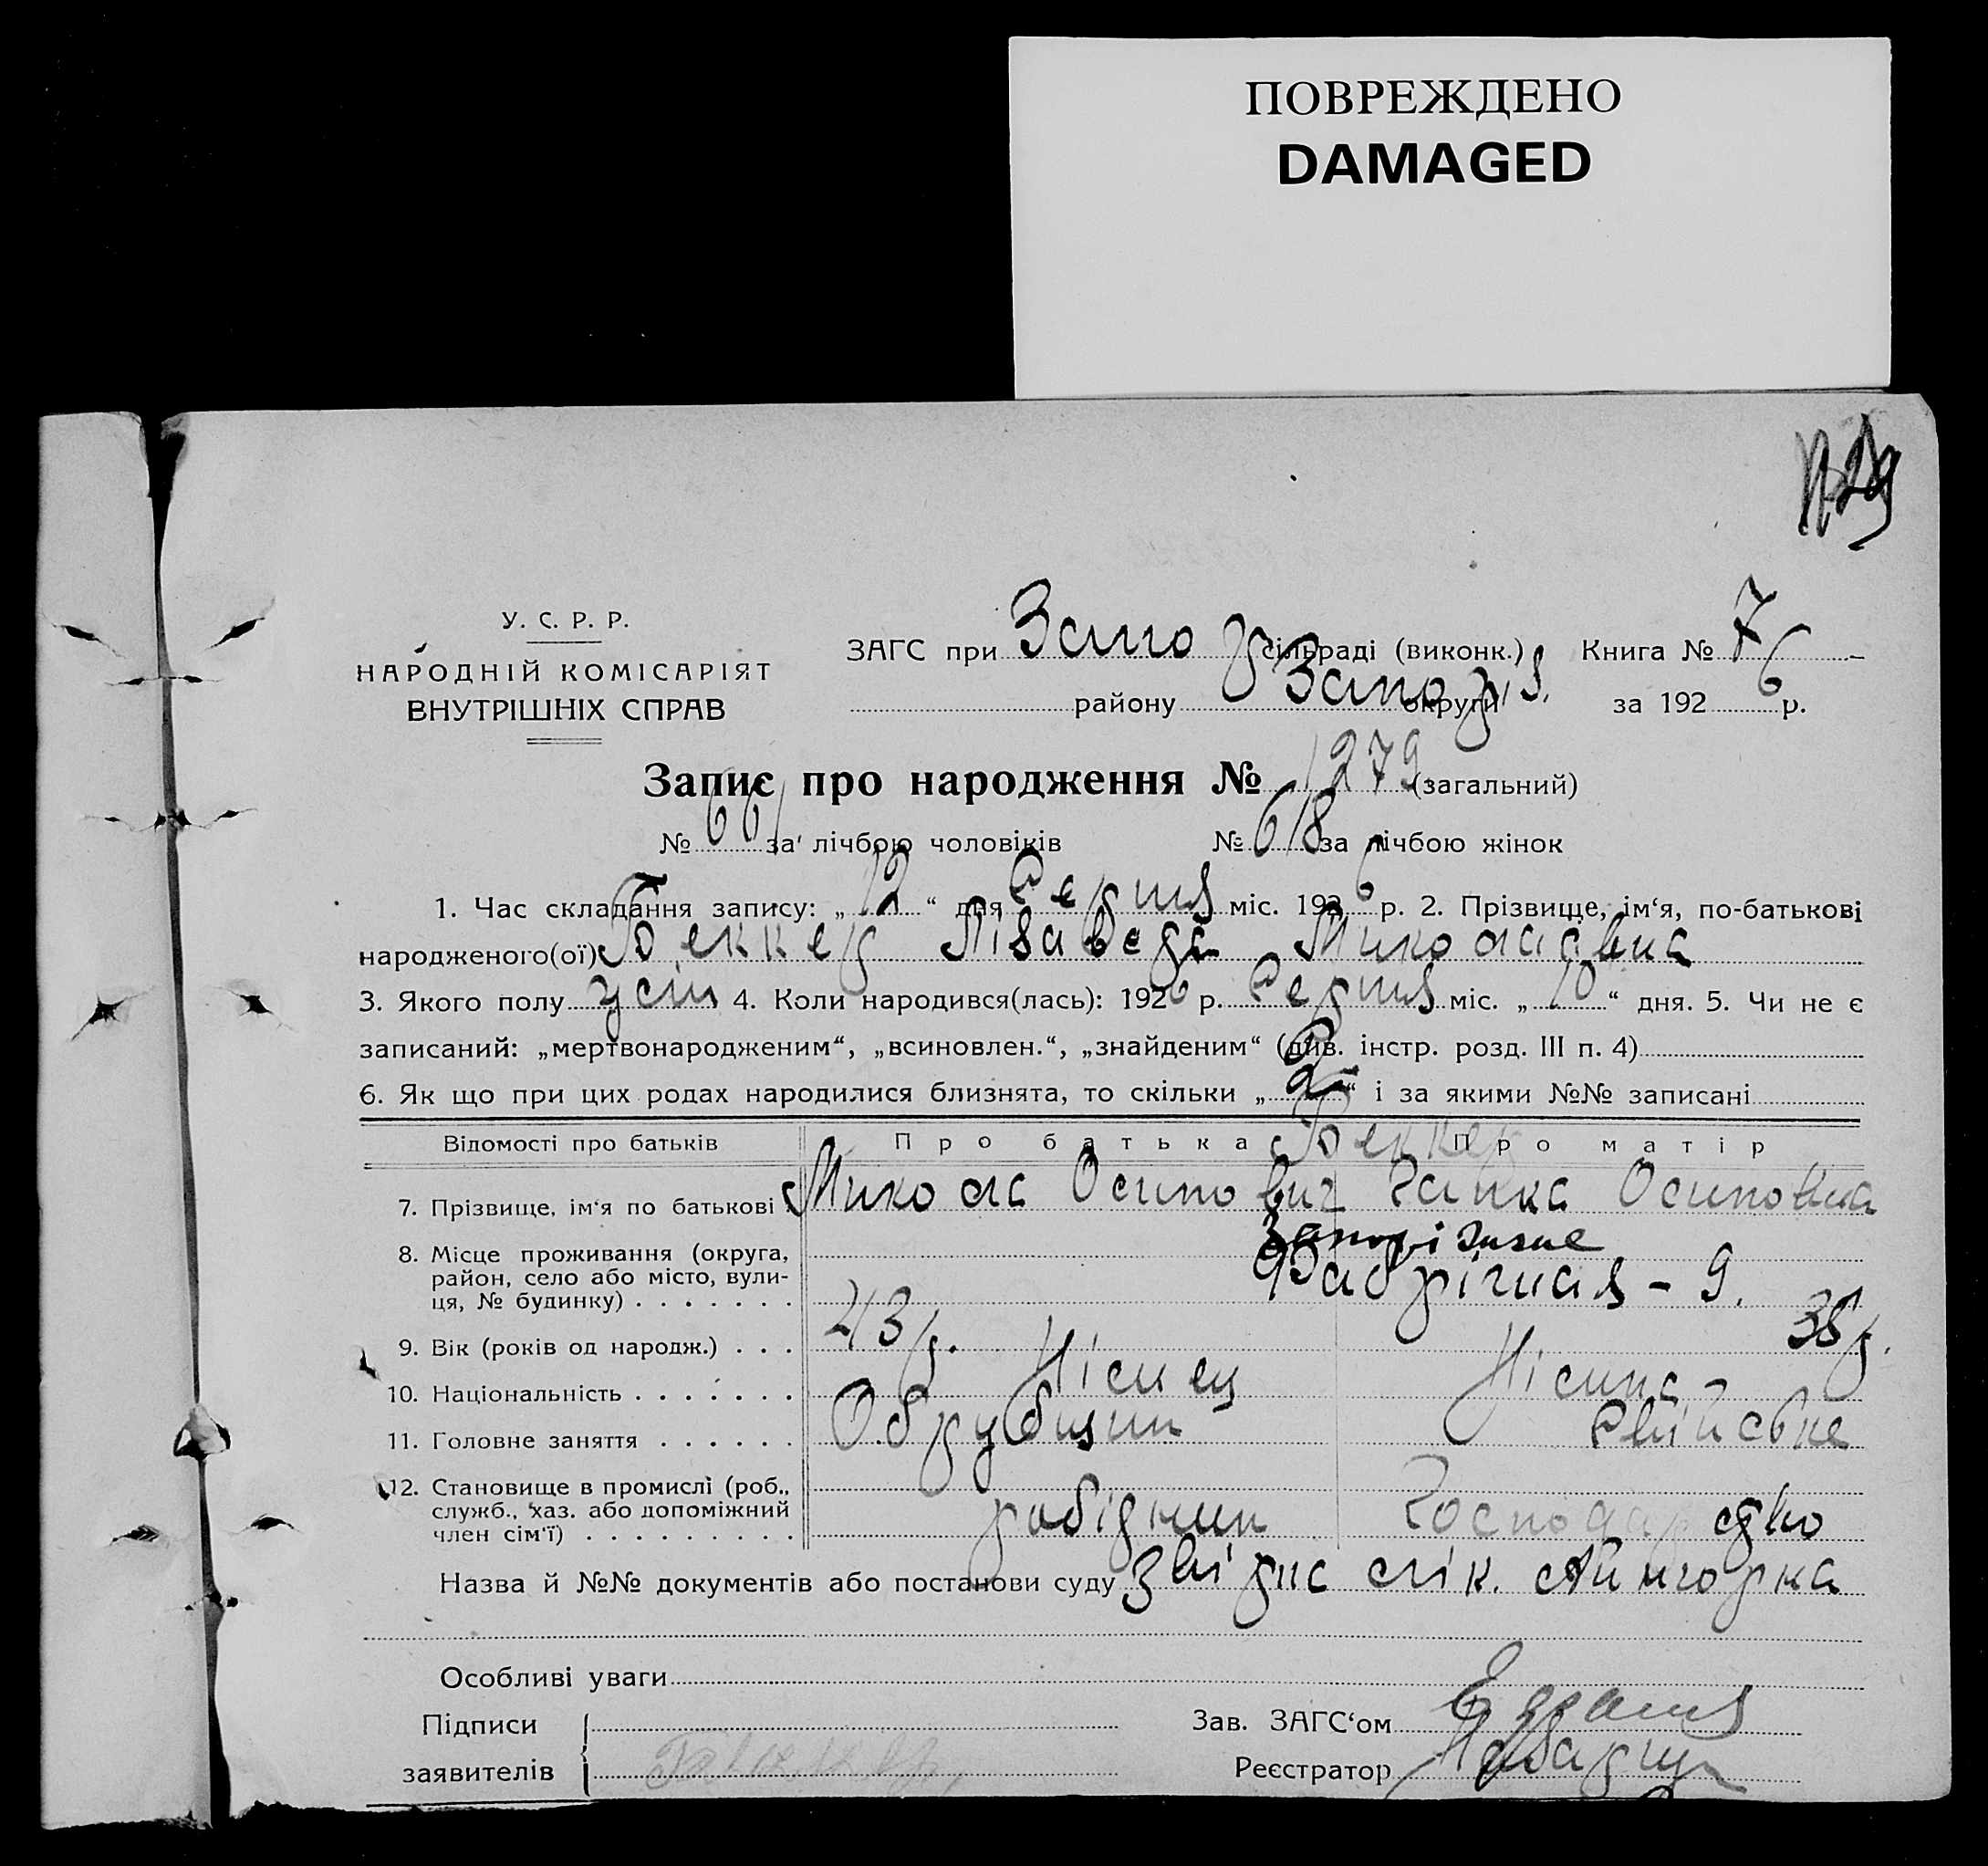 ПОВРЕЖДЕНО
DAMAGED
У. С. Р. Р.
НАРОДНІЙ КОМІСАРІЯТ
ВНУТРІШНІХ СПРАВ
ЗАГС при Запо сільраді (виконк.) Книга № 7
району Запоріз. округи за 1926 р.
Запис про народження № 1279 (загальний)
№ 661 за лічбою чоловіків № 618 за лічбою жінок
1. Час складання запису: „12“ дня Серпня міс. 1926 р. 2. Прізвище, ім‘я, по-батькові
народженого(ої) Беккер Лізавєда Миколаівна
3. Якого полу 4. Коли народився(лась): 1926 р. Серпня міс. „10“ дня. 5. Чи не є
записаний: „мертвонародженим“, „всиновлен.“, „знайденим“ (див. інстр. розд. III п. 4)
6. Як що при цих родах народилися близнята, то скільки „ “ і за якими №№ записані
Відомості про батьків Про батька Беккер Про матір
7. Прізвище, ім‘я по батькові Микола Осипович Ганка Осиповна
8. Місце проживання (округа, район, село або місто, вули- ця, № будинку) Запоріжже
Фабрічная – 9.
9. Вік (років од народж.) 43 р. 38 р.
10. Національність Німец Німка
11. Головне заняття Обрубщик Свійське
12. Становище в промислі (роб., служб., хаз. або допоміжний член сім‘ї) робідник Господарство
Назва й №№ документів або постанови суду лік.
Особливі уваги
Підписи
заявителів
Зав. ЗАГС‘ом
Реєстратор